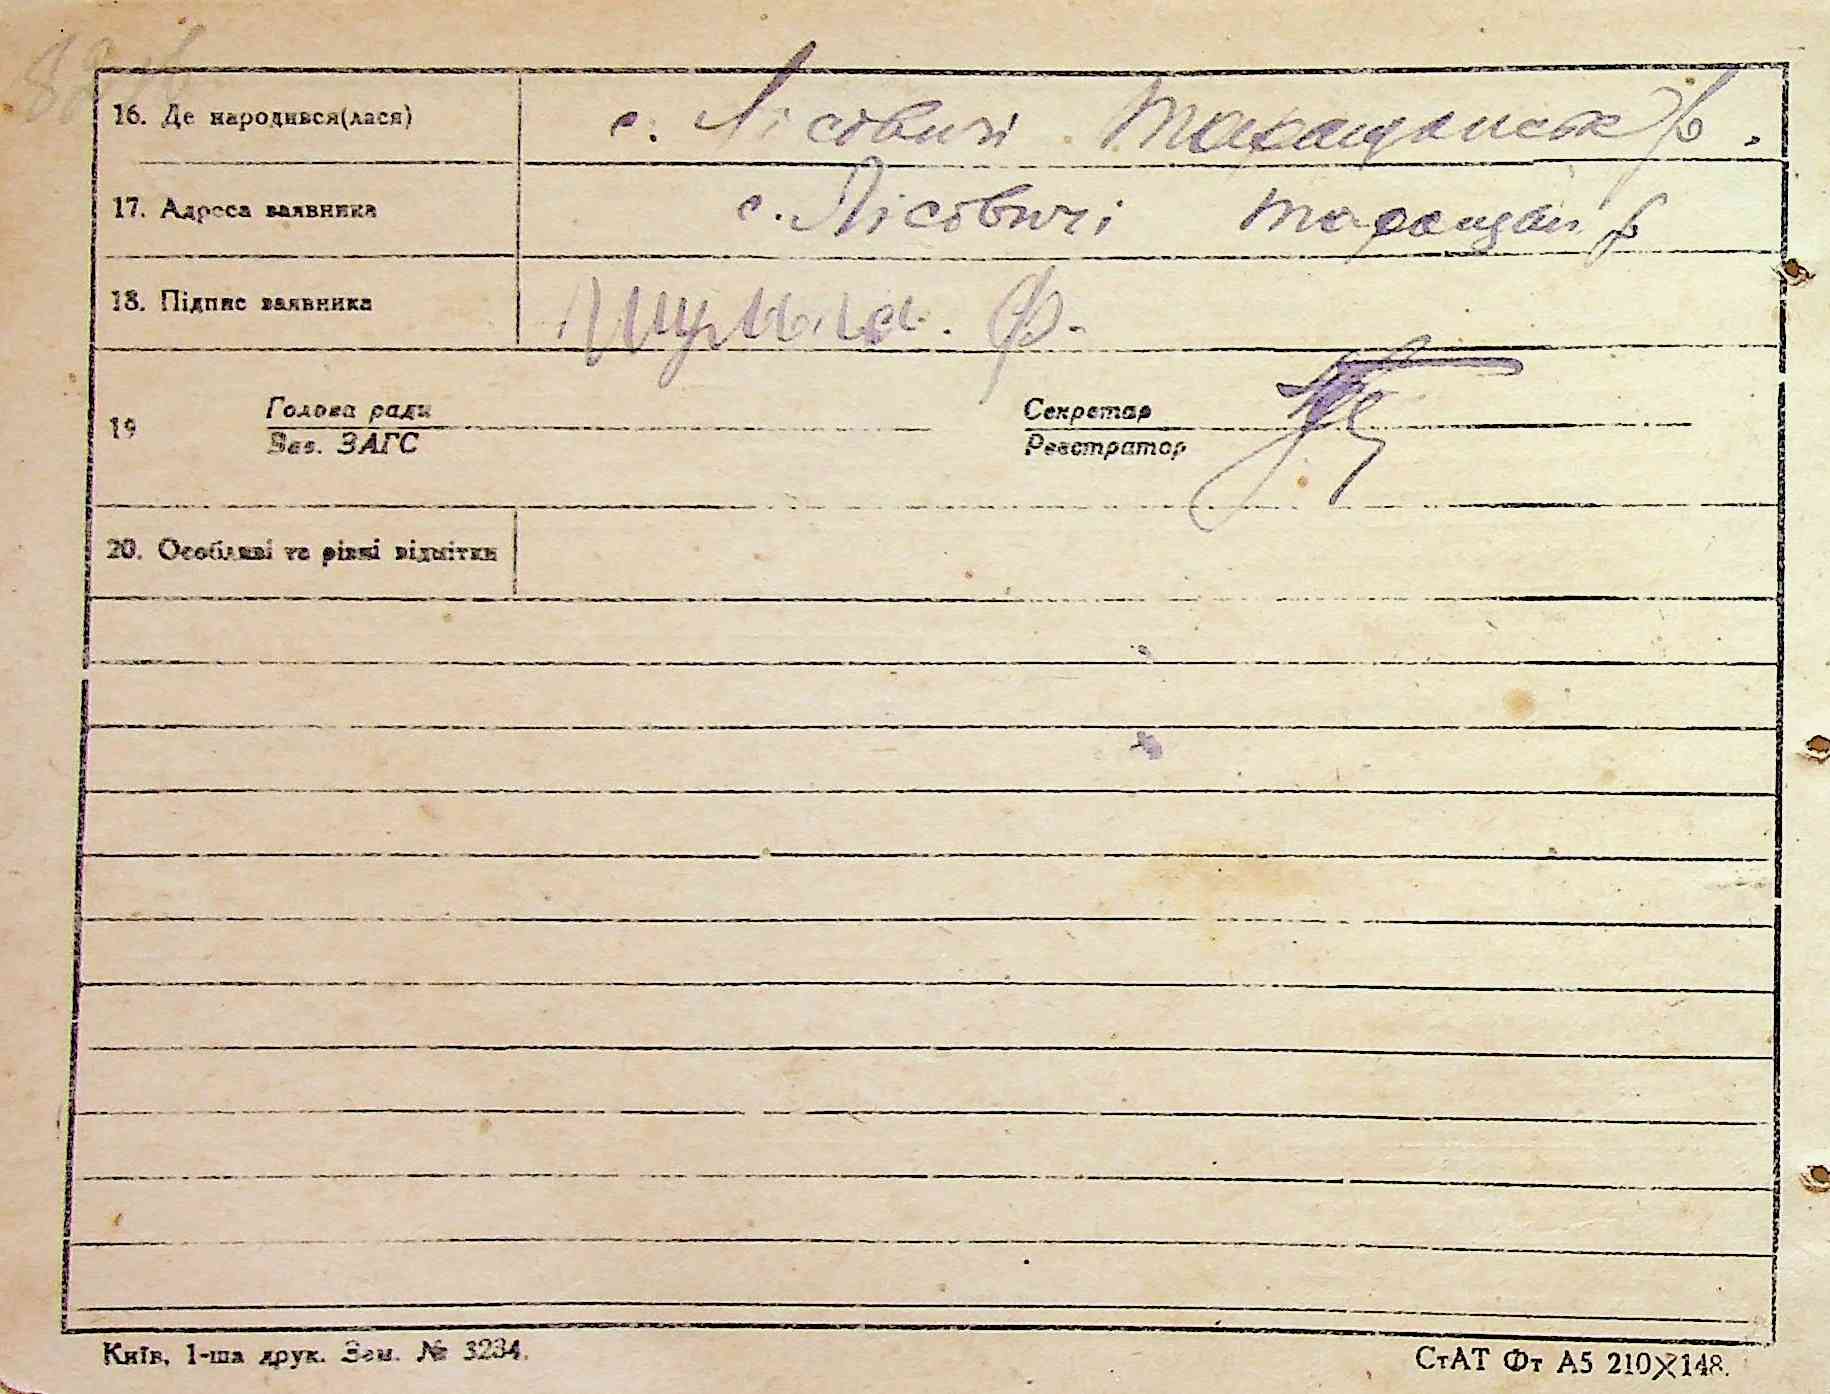 16. Де народився(лася) с. Лісовичі Таращанськ р.
17. Адреса заявника с. Лісовичі Таращан р
18. Підпис заявника Ф.
19 Голова ради Секретар
Зав. ЗАГС Реєстратор
20. Особливі та різні відмітки
Київ, 1-ша друк. Зам. № 3234.
СтАТ Фт А5 210X148.